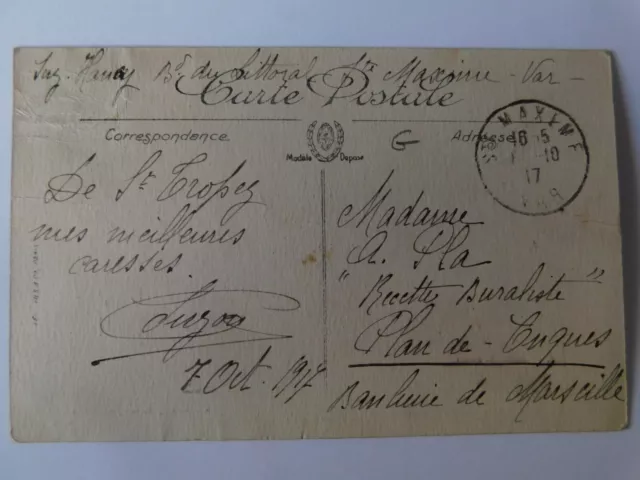 Suz. Bd du Littoral Ste Maxime - Var -
Carte Postale
Correspondance
Adresse
Modèle Déposé
G
STE MAXIME
16 - 5
10
17
VAR
De St Tropez
mes meilleures
caresses.
Suzon
7 Oct. 1917
Madame
A. Pla
"Recette Buraliste"
Plan-de-Cuques
Banlieue de Marseille